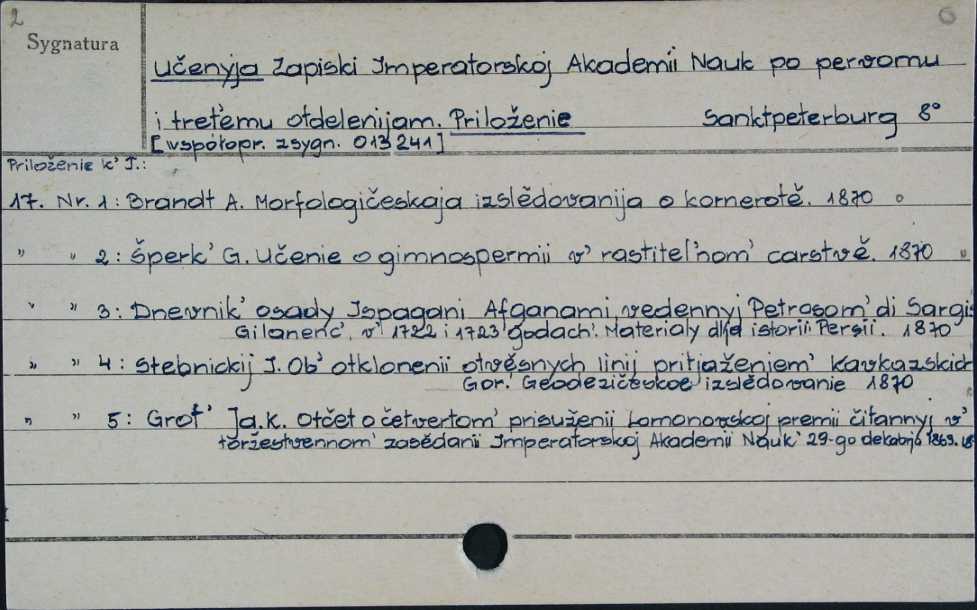 2 6
Sygnatura
Učenyja Zapiski Imperatorskoj Akademii Nauk po pervomu
i tret'emu otdelenijam. Priloženie Sanktpeterburg 8°
[współopr. z sygn. 013 241]
Priloženie k' T.:
17. Nr. 1: Brandt A. Morfologičeskaja izslědovanija o kornerotě. 1870
" " 2: Šperk' G. Učenie o gimnospermii v' rastitel'nom' carstvě. 1870
" " 3: Dnevnik' osady Ispagani Afganami, vedennyj Petrosom' di Sargis
Gilanenc', v' 1722 i 1723 godach'. Materialy dlja istorii Persii. 1870
" " 4: Stebnickij I. Ob' otklonenii otvěsnych linij pritjaženiem' Kavkazskich
Gor. Geodezičeskoe izslědovanie 1870
" " 5: Grot' Ja. k. Otčet o četvertom' prisuženii Lomonovskoj premii čitannyj v'
toržestvennom' zasědanii Imperatorskoj Akademii Nauk' 29-go dekabrja 1869.